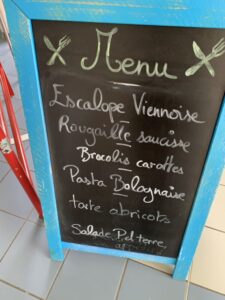 Menu
Escalope Viennoise
Rougaille saucisse
Brocolis carottes
Pasta Bolognaise
tarte abricots
Salade P de terre